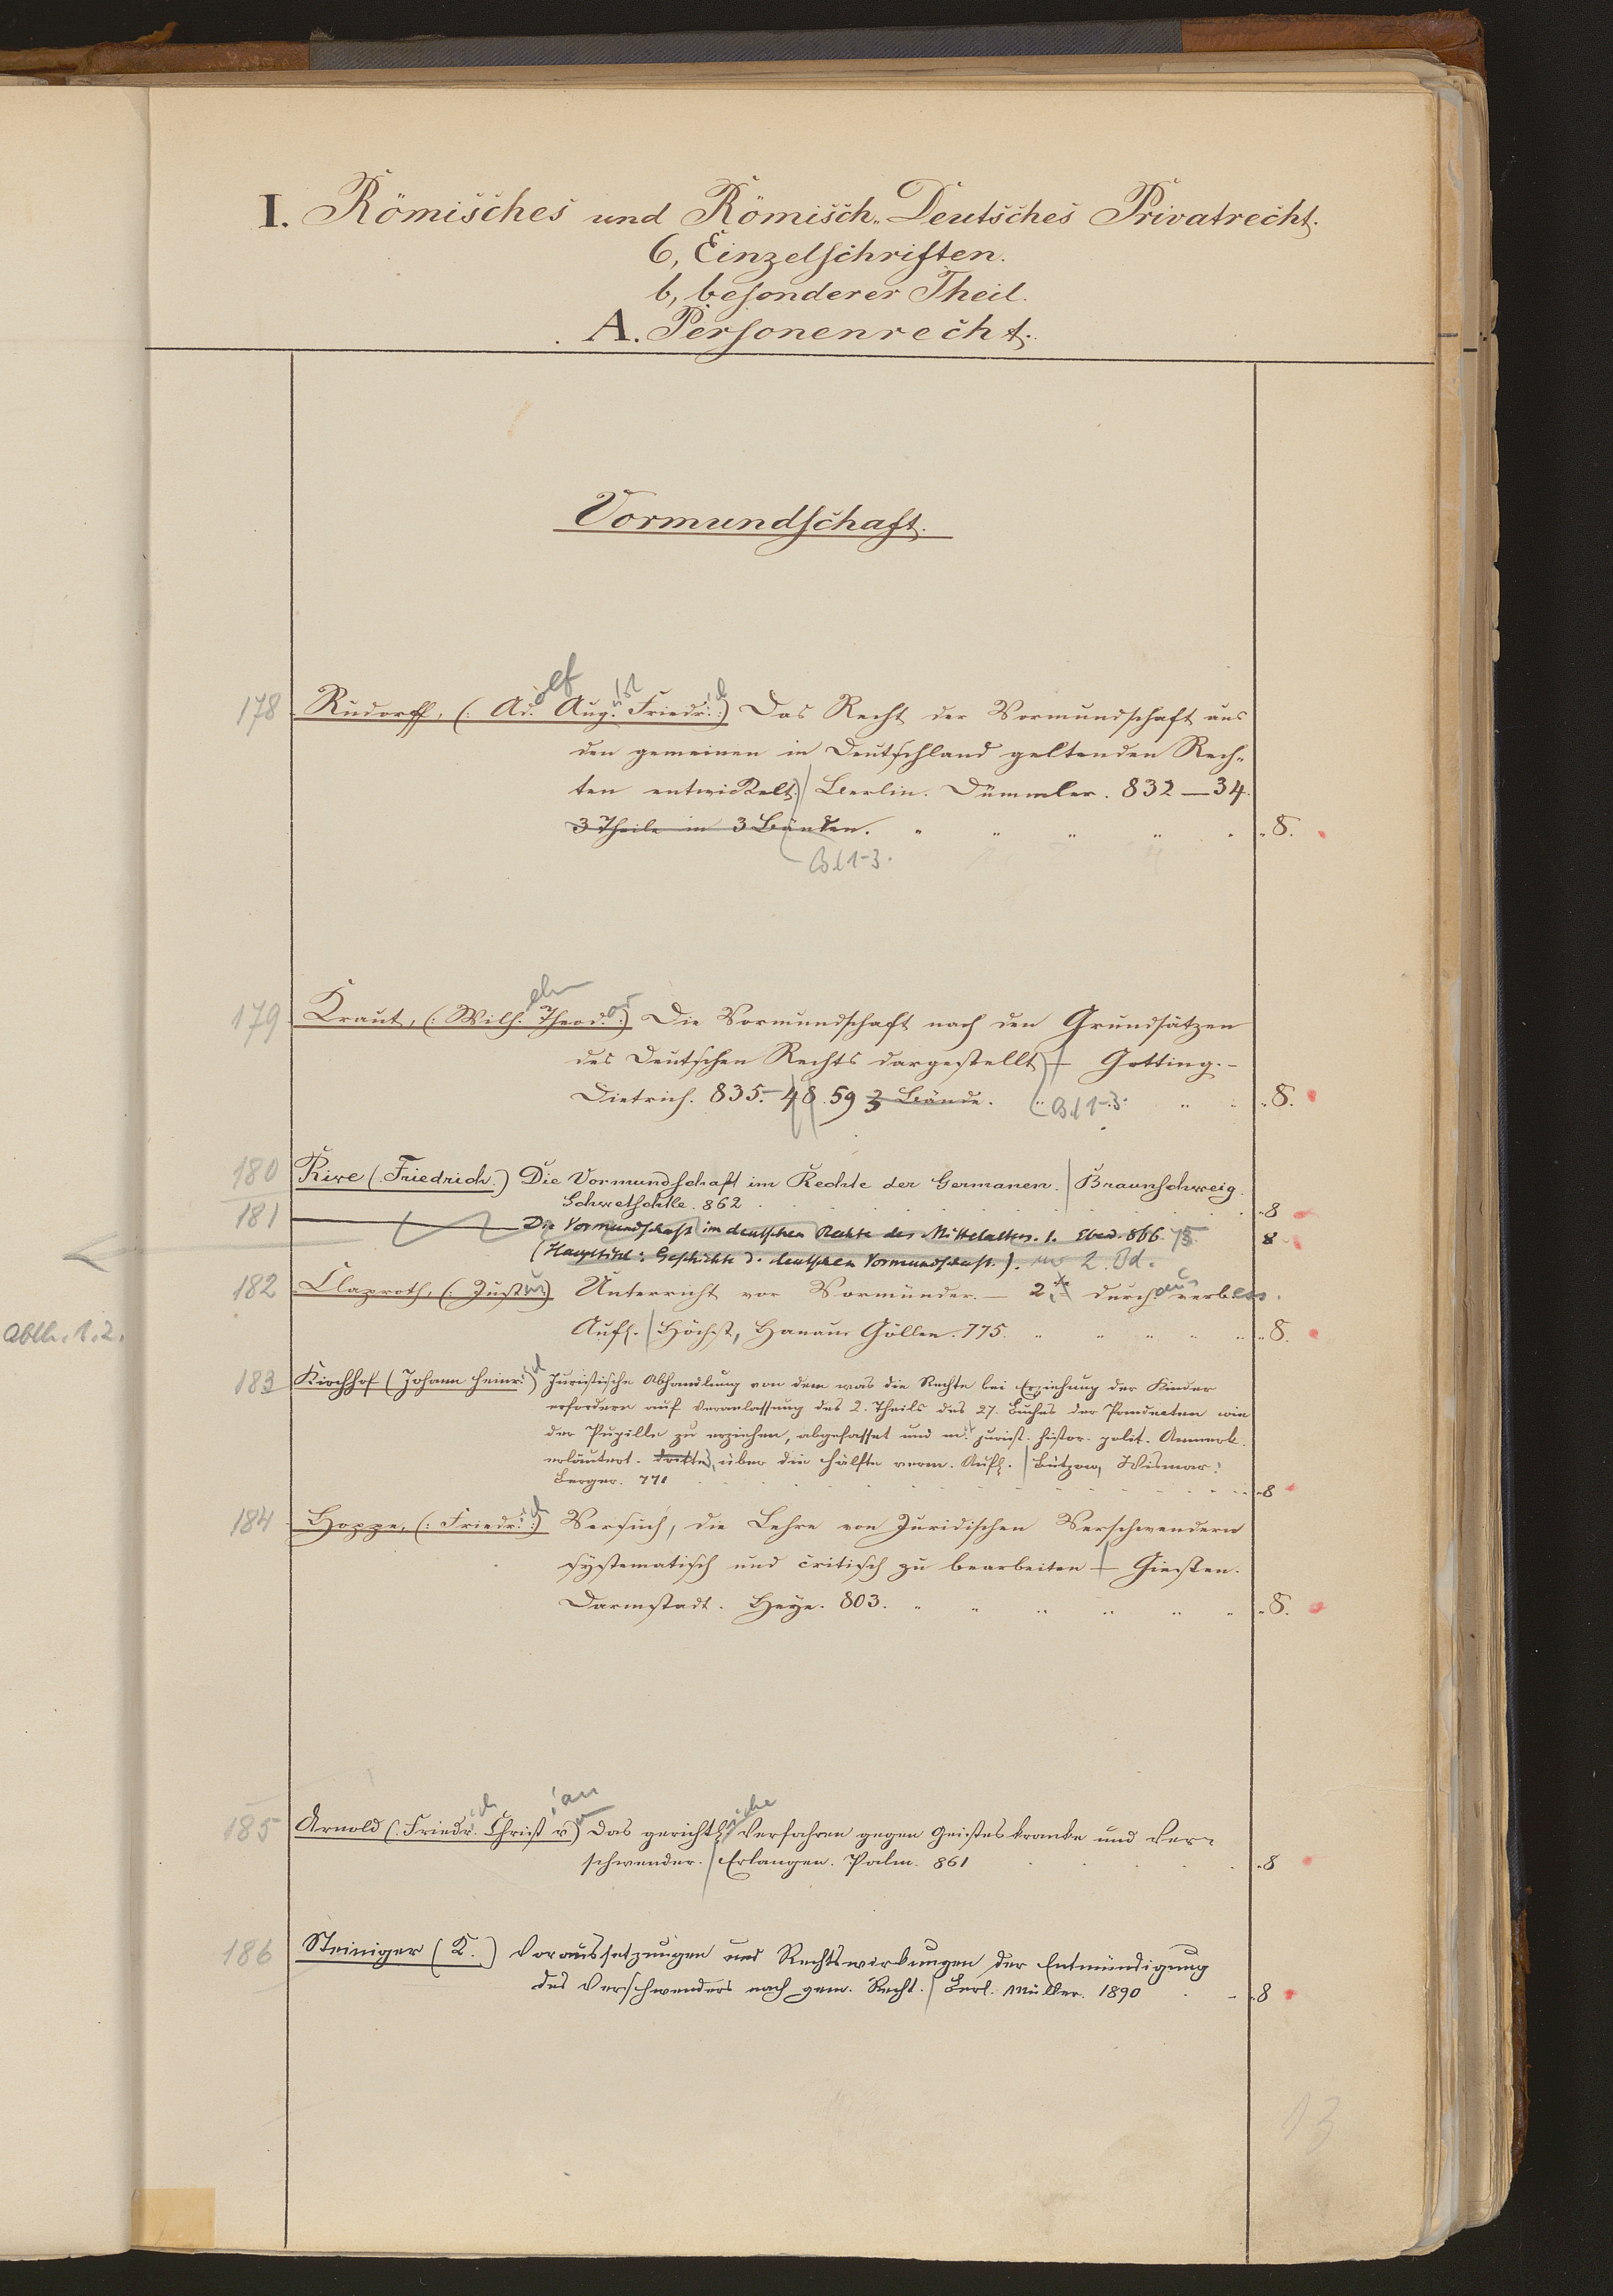 I. Römisches und Römisch-Deutsches Privatrecht.
6, Einzelschriften.
b, besonderer Theil.
A. Personenrecht.
Vormundschaft.
178 Rudorff, (: Adolf August Friedrich :) Das Recht der Vormundschaft aus
den gemeinen in Deutschland geltenden Rech-
ten entwickelt. / Berlin. Dümmler. 832—34.
3 Theile in 3 Bänden. 8.
Bd 1-3.
179 Kraut, (: Wilhelm Theodor :) Die Vormundschaft nach den Grundsätzen
des Deutschen Rechts dargestellt / Götting. -
Dietrich. 835.- 48. 59 3 Bände. Bd 1-3. 8.
180 Rive (Friedrich.) Die Vormundschaft im Rechte der Germanen. / Braunschweig.
Schwetschke. 862 8
181 Die Vormundschaft im deutschen Rechte des Mittelalters. Ebend. 866. 75. 8
(Haupttitel: Geschichte d. deutschen Vormundschaft.). 2. Bd.
182 Claproth, (: Justus) Unterricht vor Vormünder. — 2te durchaus verbess.
Aufl. / Höchst, Hanau. Göllen. 775. 8.
Abth. 1. 2.
183 Kirchhof (Johann Heinrich) Juristische Abhandlung von dem was die Rechte bei Erziehung der Kinder
erfordern auf Veranlassung des 2. Theils des 27. Buches der Pandecten wie
der Pupille zu erziehen, abgefasset und m. jurist. histor. polit. Anmerk.
erläutert. Dritte, über die Hälfte verm. Aufl. / Bützow, Wismar:
Berger. 771 8
184 Hoppe, (: Friedrich :) Versuch, die Lehre von Juridischen Verschwendern
systematisch und critisch zu bearbeiten / Giessen.
Darmstadt. Heyer. 803. 8.
185 Arnold (: Friedrich Christian v.) Das gerichtliche Verfahren gegen Geisteskranke und Ver-
schwender. / Erlangen. Palm. 861 8
186 Steiniger (K.) Voraussetzungen und Rechtswirkungen der Entmündigung
des Verschwenders nach gem. Recht. / Berl. Müller. 1890 8
13